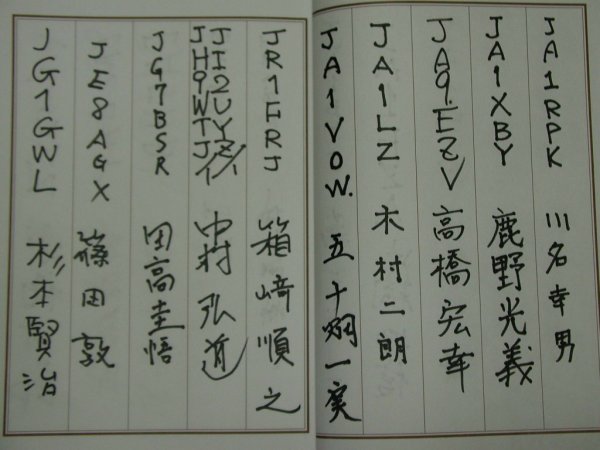 JA1RPK 川名幸男
JA1XBY 鹿野光義
JA9.EZV 高橋宏幸
JA1LZ 木村二朗
JA1VOW. 五十嵐一実
JR1FRJ 箱﨑順之
JI2UYZ/
JH9WTJ/1 中村弘道
JG7BSR 田高圭悟
JE8AGX 篠田敦
JG1GWL 杉本賢治